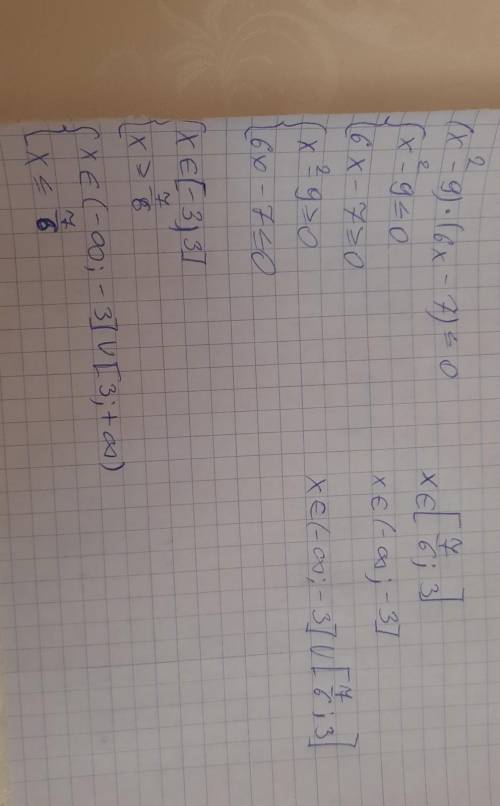 (x² - 9)·(6x - 7) ≤ 0
{ x² - 9 ≤ 0
{ 6x - 7 ≥ 0
{ x² - 9 ≥ 0
{ 6x - 7 ≤ 0
{ x ∈ [-3; 3]
{ x > 7/6
{ x ∈ (-∞; -3] ∪ [3; +∞)
{ x ≤ 7/6
x ∈ [7/6; 3]
x ∈ (-∞; -3]
x ∈ (-∞; -3] ∪ [7/6; 3]